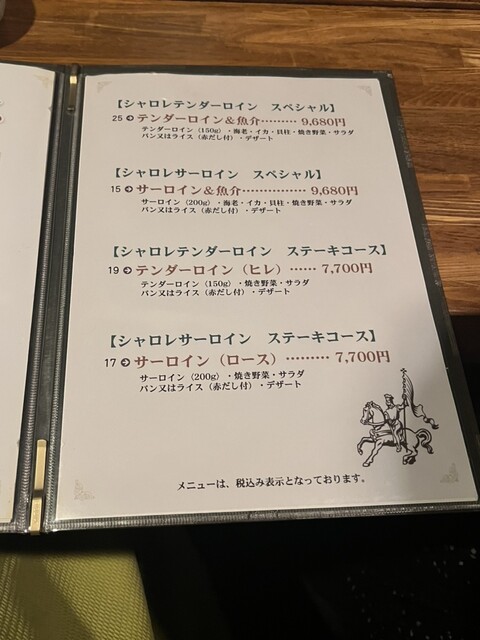 【シャロレテンダーロイン スペシャル】
25➔テンダーロイン＆魚介………9,680円
テンダーロイン（150g）・海老・イカ・貝柱・焼き野菜・サラダ
パン又はライス（赤だし付）・デザート
【シャロレサーロイン スペシャル】
15➔サーロイン＆魚介……………9,680円
サーロイン（200g）・海老・イカ・貝柱・焼き野菜・サラダ
パン又はライス（赤だし付）・デザート
【シャロレテンダーロイン ステーキコース】
19➔テンダーロイン（ヒレ）……7,700円
テンダーロイン（150g）・焼き野菜・サラダ
パン又はライス（赤だし付）・デザート
【シャロレサーロイン ステーキコース】
17➔サーロイン（ロース）………7,700円
サーロイン（200g）・焼き野菜・サラダ
パン又はライス（赤だし付）・デザート
メニューは、税込み表示となっております。